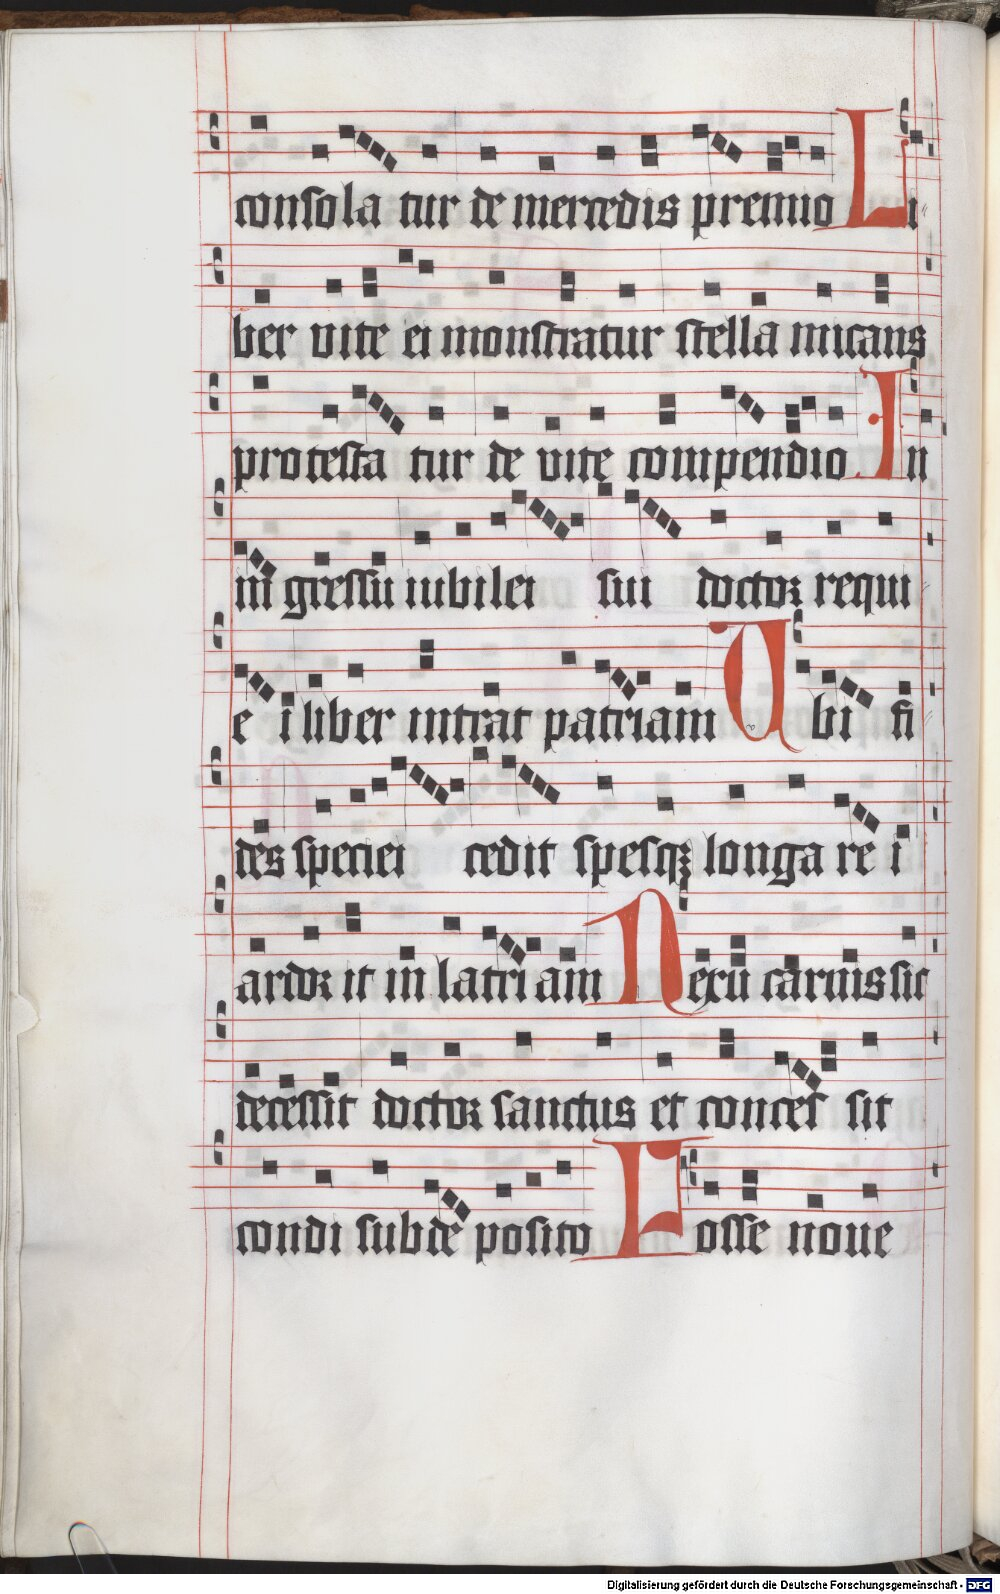 consola tur de mercedis premio Li
ber vite ei monstratur stella micans
protesta tur de vite compendio In
in gressu iubilei sui doctor requi
e i liber intrat patriam Ubi fi
des speciei cedit spesqꝫ longa re i
ardor it in latri am Nexū carnis sic
decessit doctor sanctus et conces sit
condi sub de posito Fosse noue
Digitalisierung gefördert durch die Deutsche Forschungsgemeinschaft - DFG